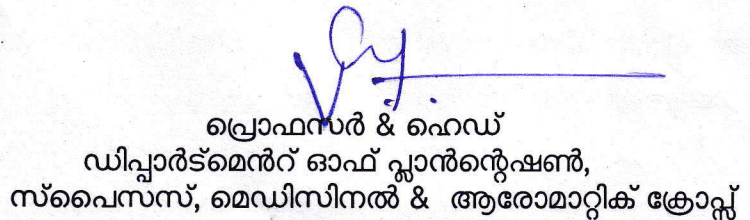 പ്രൊഫസർ & ഹെഡ്
ഡിപ്പാർട്മെൻറ് ഓഫ് പ്ലാൻന്റേഷൺ,
സ്പൈസസ്, മെഡിസിനൽ & ആരോമാറ്റിക് ക്രോപ്സ്